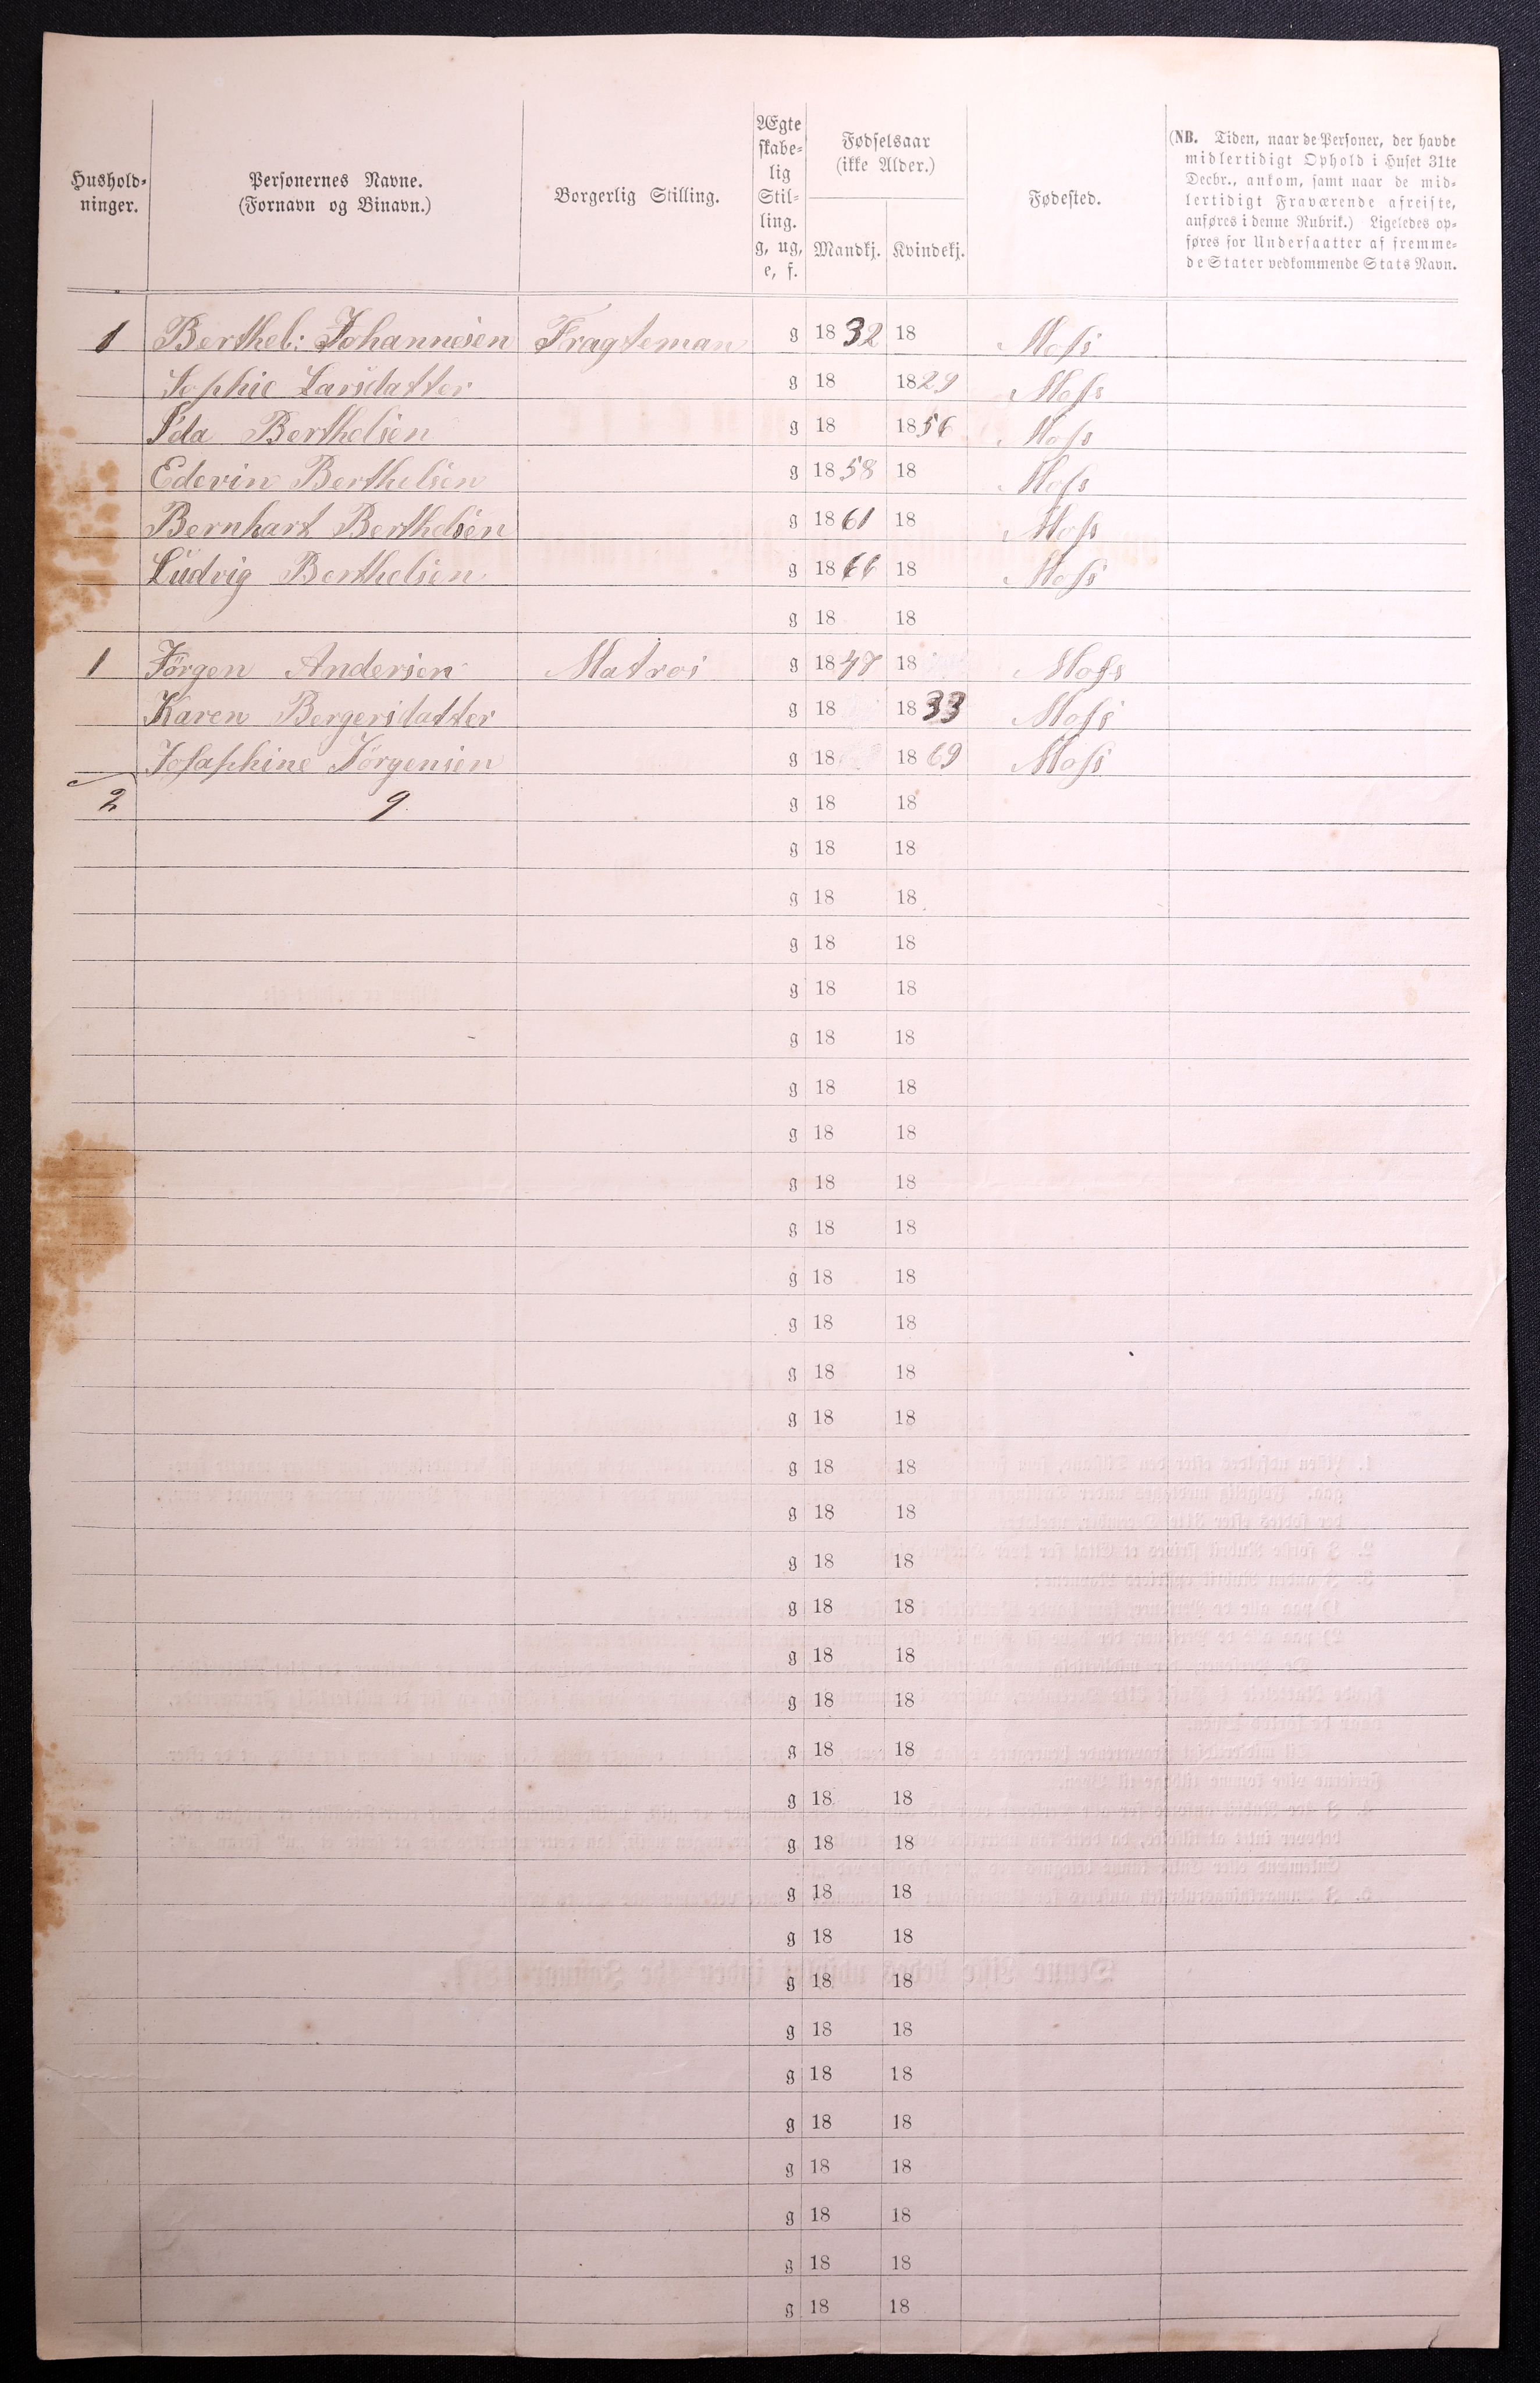 Hushold-
ninger.
Personernes Navne.
(Fornavn og Binavn.)
Borgerlig Stilling.
Ægte
skabe-
lig
Stil-
ling.
g, ug,
e, f.
Fødselsaar
(ikke Alder.)
Mandkj. Kvindekj.
Fødested.
(NB. Tiden, naar de Personer, der havde
midlertidigt Ophold i Huset 31te
Decbr., ankom, samt naar de mid-
lertidigt Fraværende afreiste,
anføres i denne Rubrik.) Ligeledes op-
føres for Undersaatter af fremme-
de Stater vedkommende Stats Navn.
1 Berthel: Johannesen Fragteman g 1832 18 Moss
Sophie Larsdatter g 18 1829 Moss
Ida Berthelsen g 18 1856 Moss
Edevin Berthelsen g 1858 18 Moss
Bernhart Berthelsen g 1861 18 Moss
Ludvig Berthelsen g 1866 18 Moss
g 18 18
1 Jörgen Andersen Matros g 1847 18 Moss
Karen Bergersdatter g 18 1833 Moss
Josaphine Jörgensen g 18 1869 Moss
2 9 g 18 18
g 18 18
g 18 18
g 18 18
g 18 18
g 18 18
g 18 18
g 18 18
g 18 18
g 18 18
g 18 18
g 18 18
g 18 18
g 18 18
g 18 18
g 18 18
g 18 18
g 18 18
g 18 18
g 18 18
g 18 18
g 18 18
g 18 18
g 18 18
g 18 18
g 18 18
g 18 18
g 18 18
g 18 18
g 18 18
g 18 18
g 18 18
g 18 18